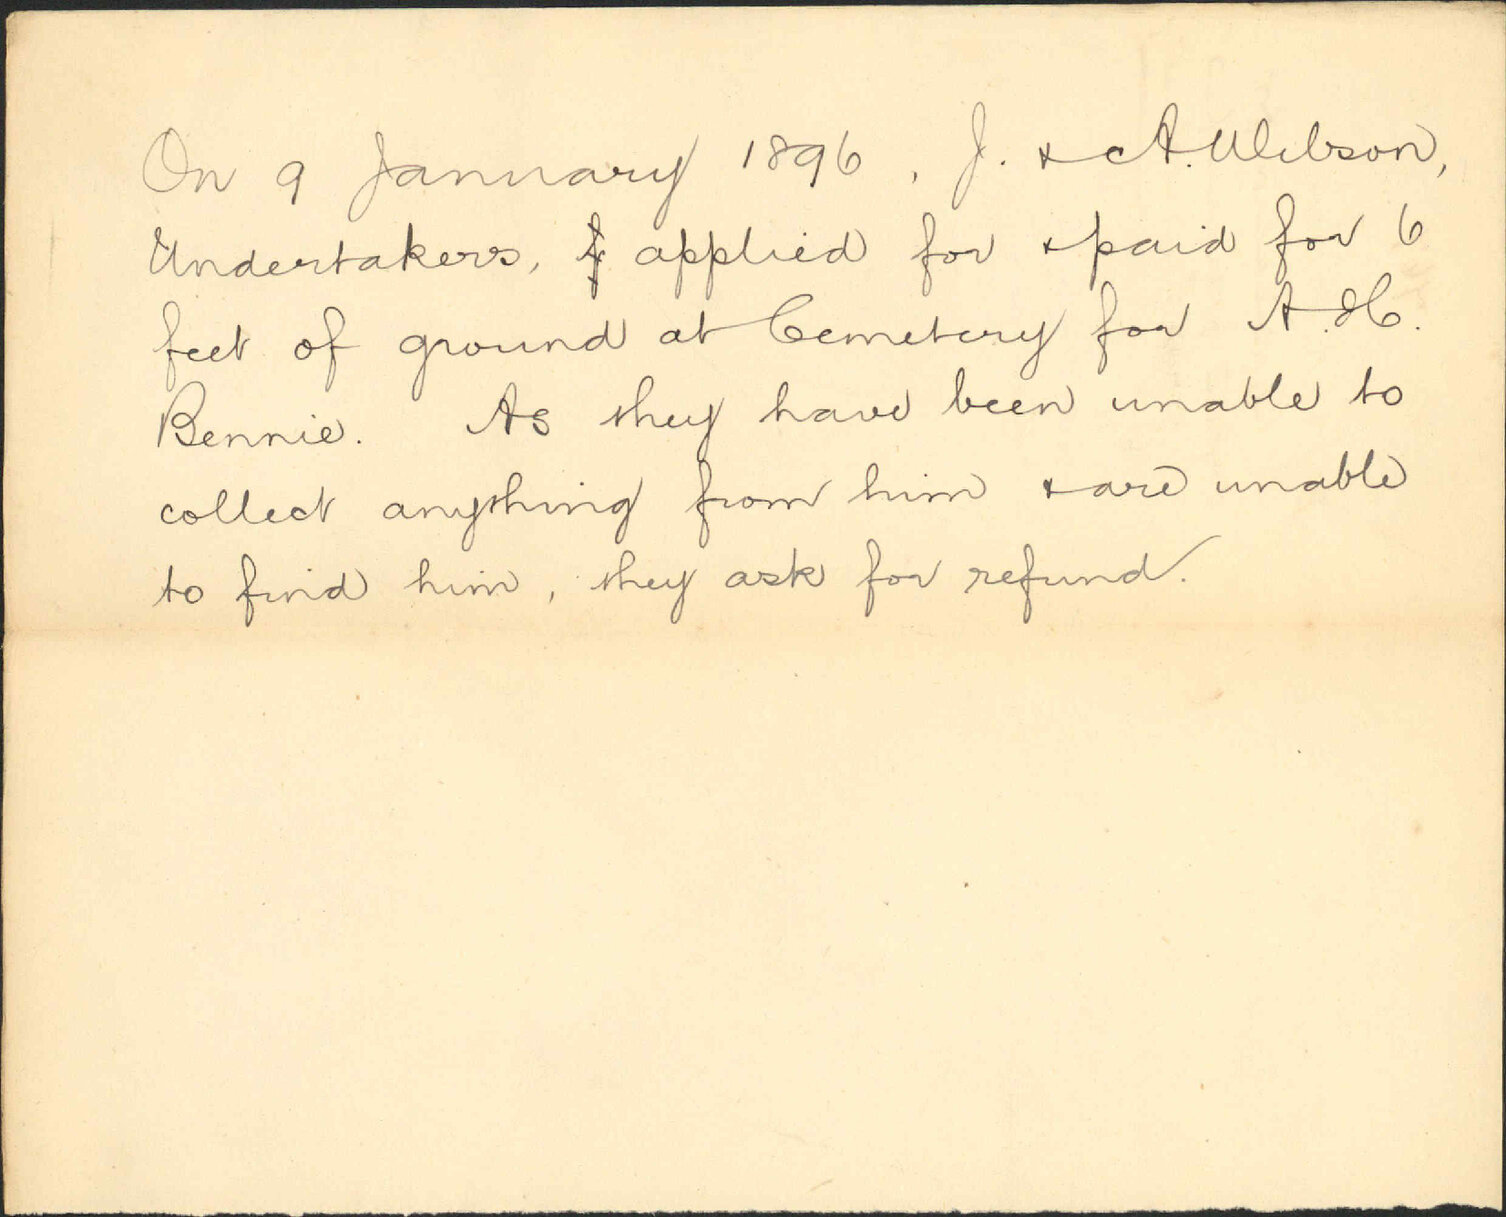 On 9 January 1896, J. & A. Wilson,
Undertakers, applied for & paid for 6
feet of ground at Cemetery for A. H.
Bennie. As they have been unable to
collect anything from him & are unable
to find him, they ask for refund.